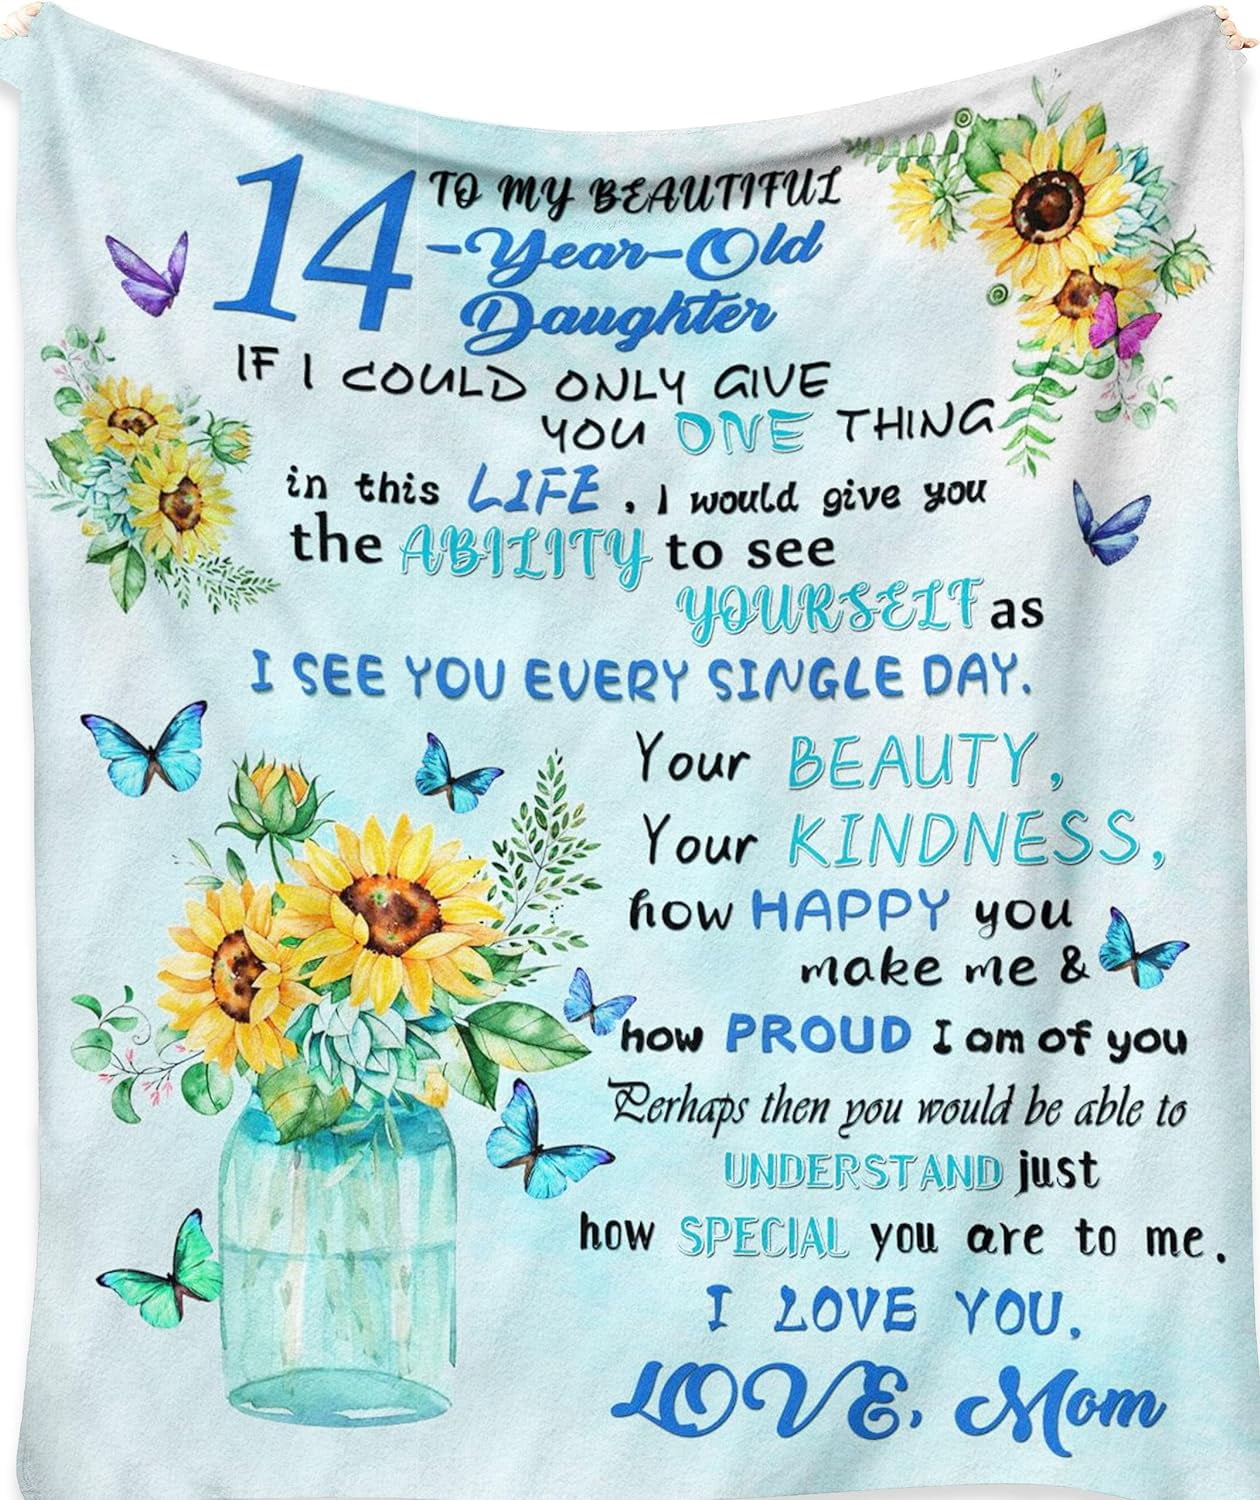 14 TO MY BEAUTIFUL
-Year-Old
Daughter
IF I COULD ONLY GIVE
YOU ONE THING
in this LIFE, I would give you
the ABILITY to see
YOURSELF as
I SEE YOU EVERY SINGLE DAY.
Your BEAUTY,
Your KINDNESS,
how HAPPY you
make me &
how PROUD I am of you
Perhaps then you would be able to
UNDERSTAND just
how SPECIAL you are to me.
I LOVE YOU,
LOVE, Mom